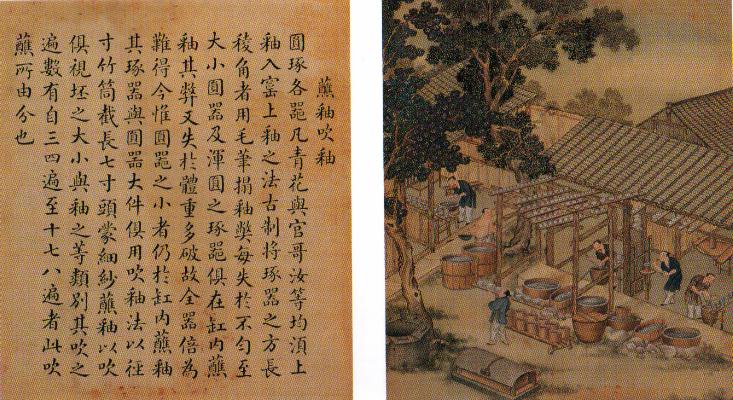 蘸釉吹釉
圓琢各噐凡青花與官哥汝等均湏上
釉入窑上釉之法古制將琢器之方長
稜角者用毛筆搨釉弊每失於不匀至
大小圓器及渾圓之琢器俱在缸内蘸
釉其弊又失於體重多破故全器倍為
難得今惟圓噐之小者仍於缸内蘸釉
其琢器與圓器大件俱用吹釉法以徑
寸竹筒截長七寸頭蒙細紗蘸釉以吹
俱視坯之大小與釉之等類别其吹之
遍數有自三四遍至十七八遍者此吹
蘸所由分也